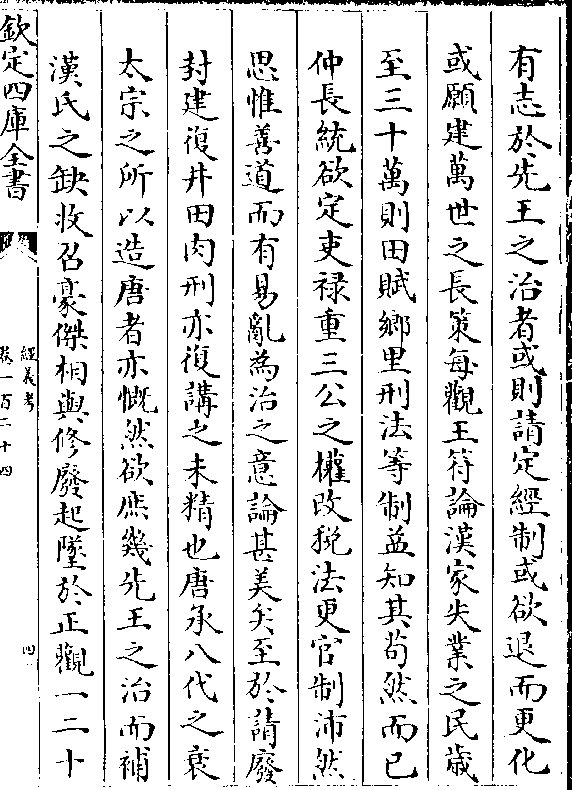 有志於先王之治者或則請定經制或欲退而更化
或願建萬世之長策每觀王符論漢家失業之民歲
至三十萬則田賦鄉里刑法等制益知其苟然而已
仲長統欲定吏禄重三公之權改稅法更官制沛然
思惟善道而有易亂為治之意論甚美矣至於請廢
封建復井田肉刑亦復講之未精也唐承八代之衰
太宗之所以造唐者亦慨然欲庶幾先王之治而補
漢氏之缺收召豪傑相與修廢起墜於正觀一二十
欽定四庫全書
經義考
卷一百二十四
四